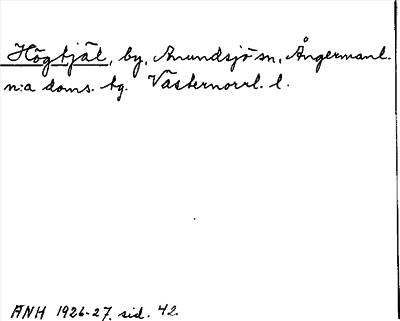 Högbjäl, by, Anundsjö sn, Ångermanl.
n:a doms. tg. Västernorrl. l.
ÅNH 1926-27, sid. 42.